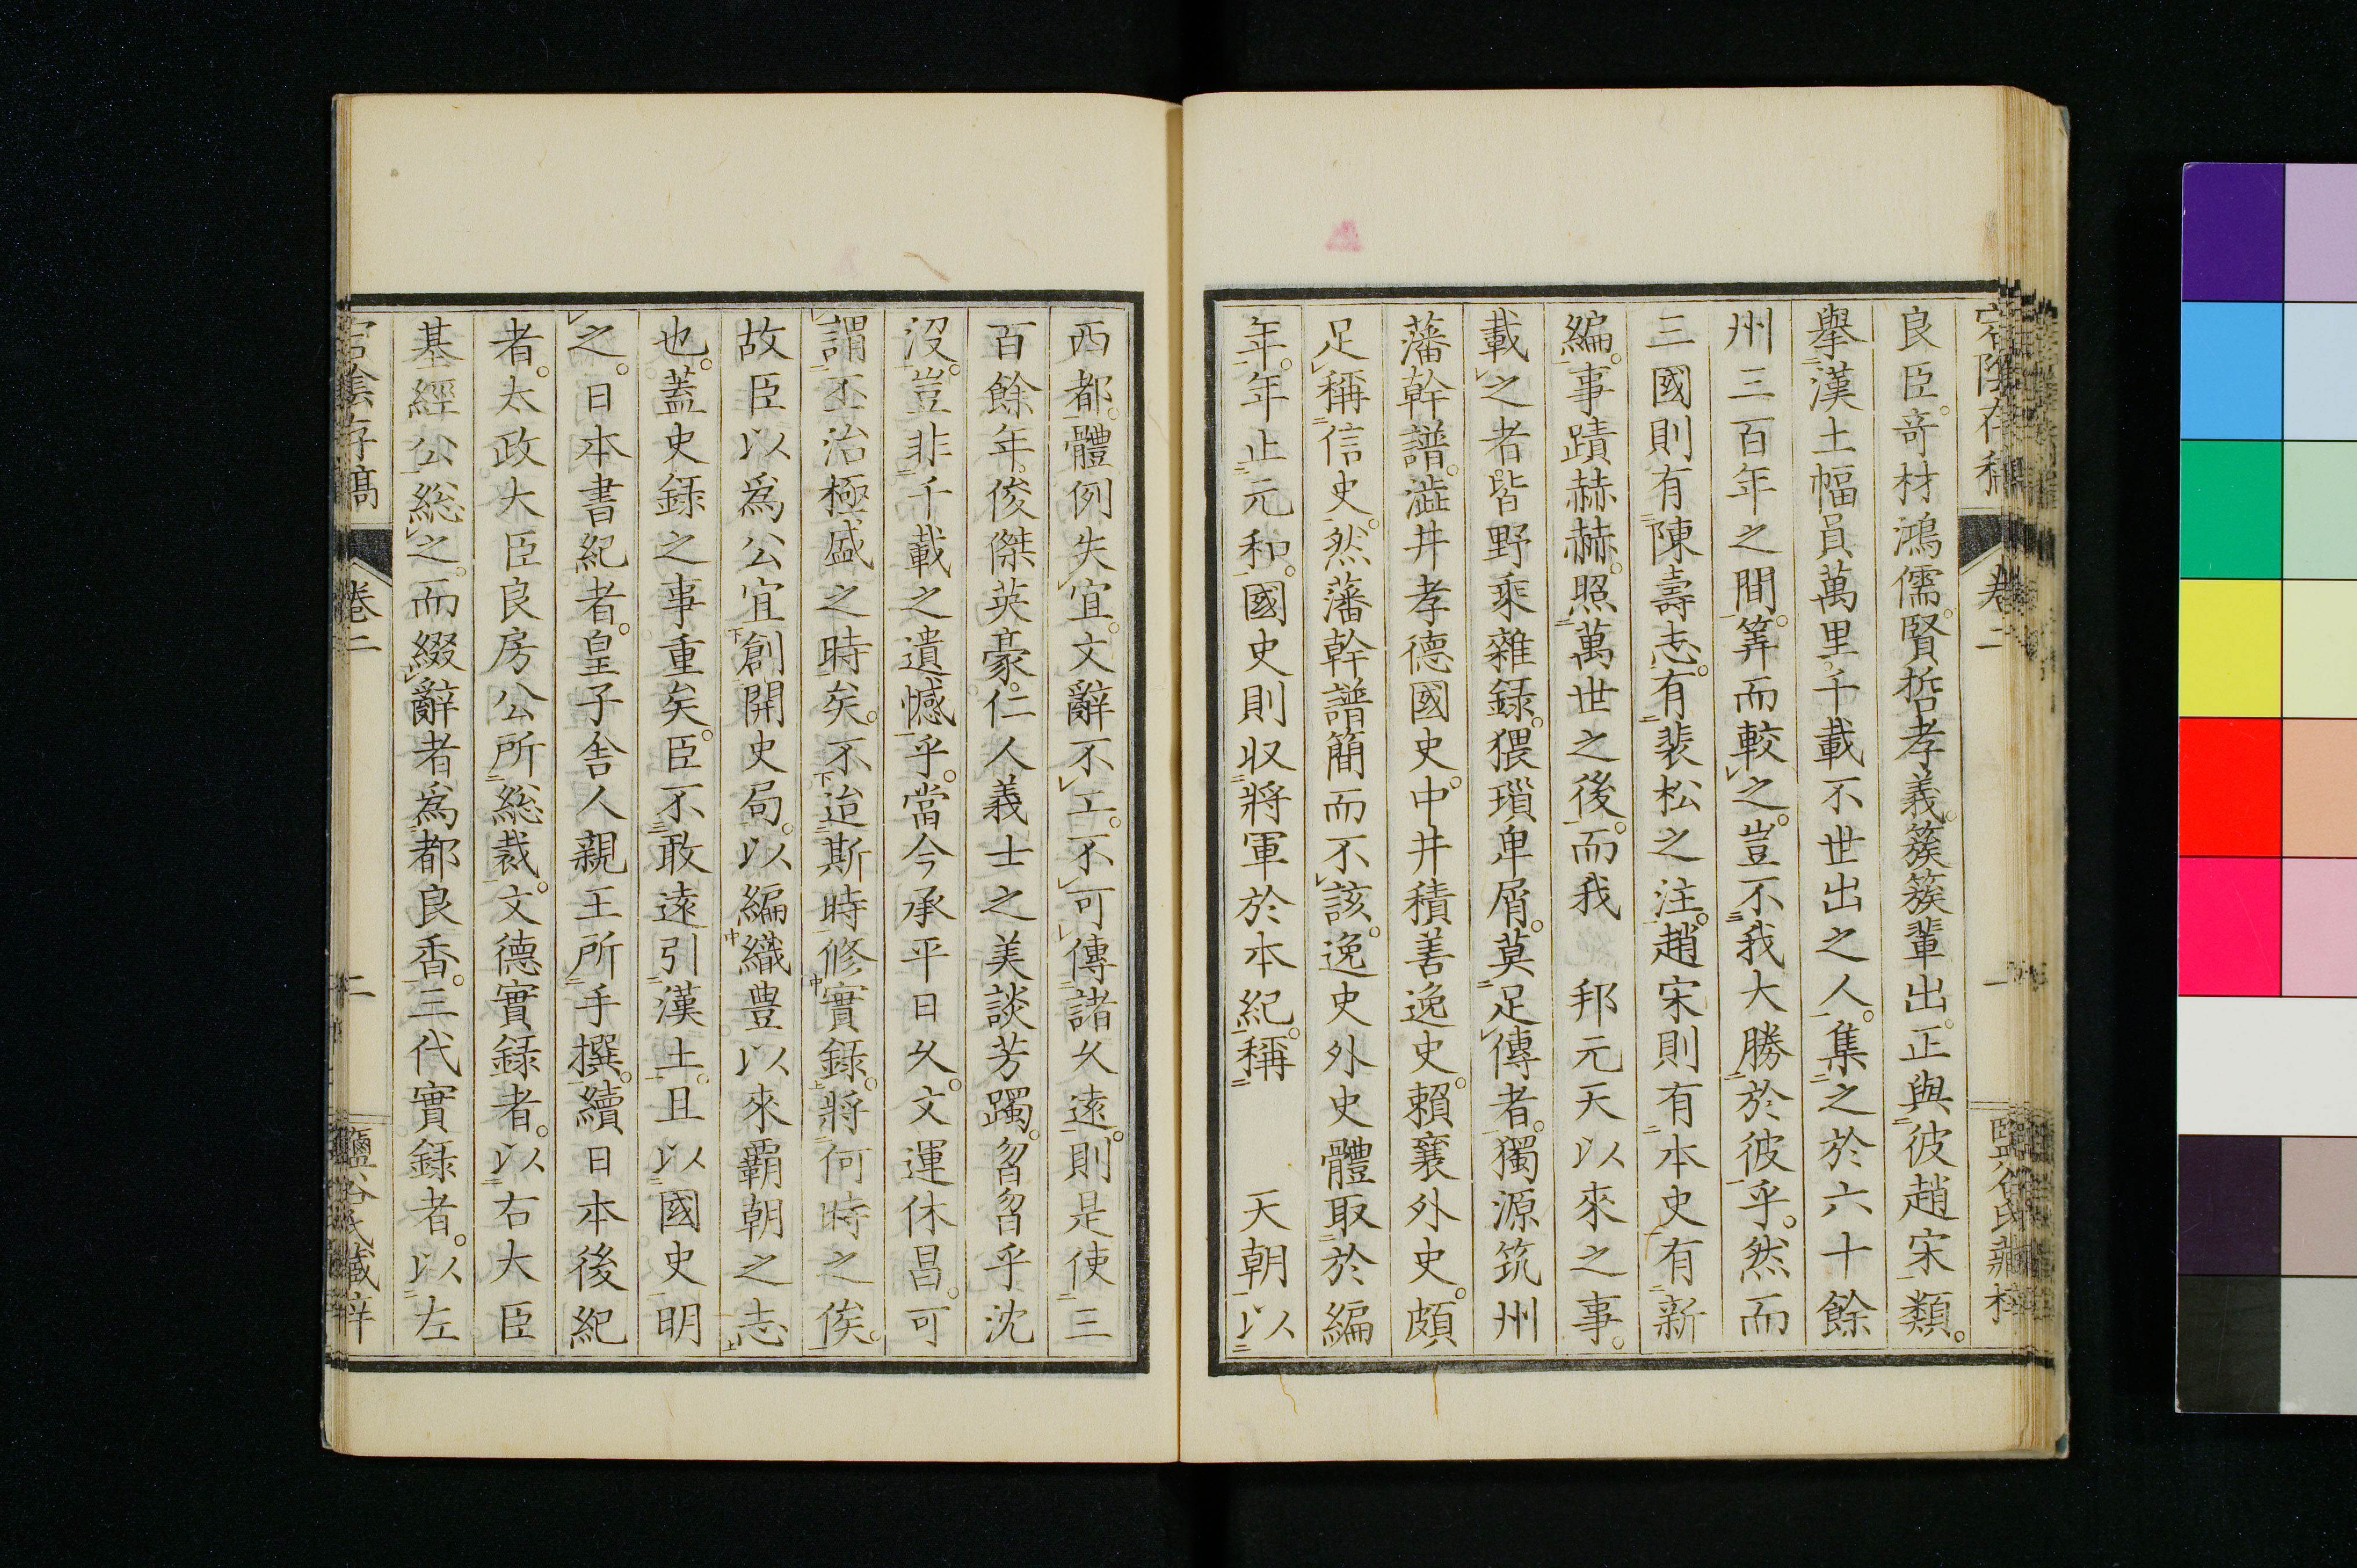 良臣。奇材鴻儒。賢哲孝義。簇簇輩出。正與彼趙宋類。
擧漢土幅員萬里。千載不世出之人。集之於六十餘
州三百年之間。筭而較之。豈不我大勝於彼乎。然而
三國則有陳壽志。有裴松之注。趙宋則有本史有新
編。事蹟赫赫。照萬世之後。而我 邦元天以來之事。
載之者。皆野乘雜録。猥瑣卑屑。莫足傳者。獨源筑州
藩幹譜。澁井孝德國史。中井積善逸史。賴襄外史。頗
足稱信史。然藩幹譜簡而不該。逸史外史體取於編
年。年止元和。國史則収將軍於本紀。稱 天朝以
西都。體例失宜。文辭不工。不可傳諸久遠。則是使三
百餘年。俊傑英豪。仁人義士之美談芳躅。曶曶乎沈
沒。豈非千載之遺憾乎。當今承平日久。文運休昌。可
謂丕治極盛之時矣。不迨斯時修實錄。將何時之俟。
故臣以爲公宜創開史局。以編織豊以來覇朝之志
也。蓋史録之事重矣。臣不敢遠引漢土。且以國史明
之。日本書紀者。皇子舍人親王所手撰。續日本後紀
者。太政大臣良房公所総裁。文德實録者。以右大臣
基經公総之。而綴辭者爲都良香。三代實録者。以左
宕陰存稿
卷二
一
宕陰存稿
卷二
二
鹽谷氏藏梓